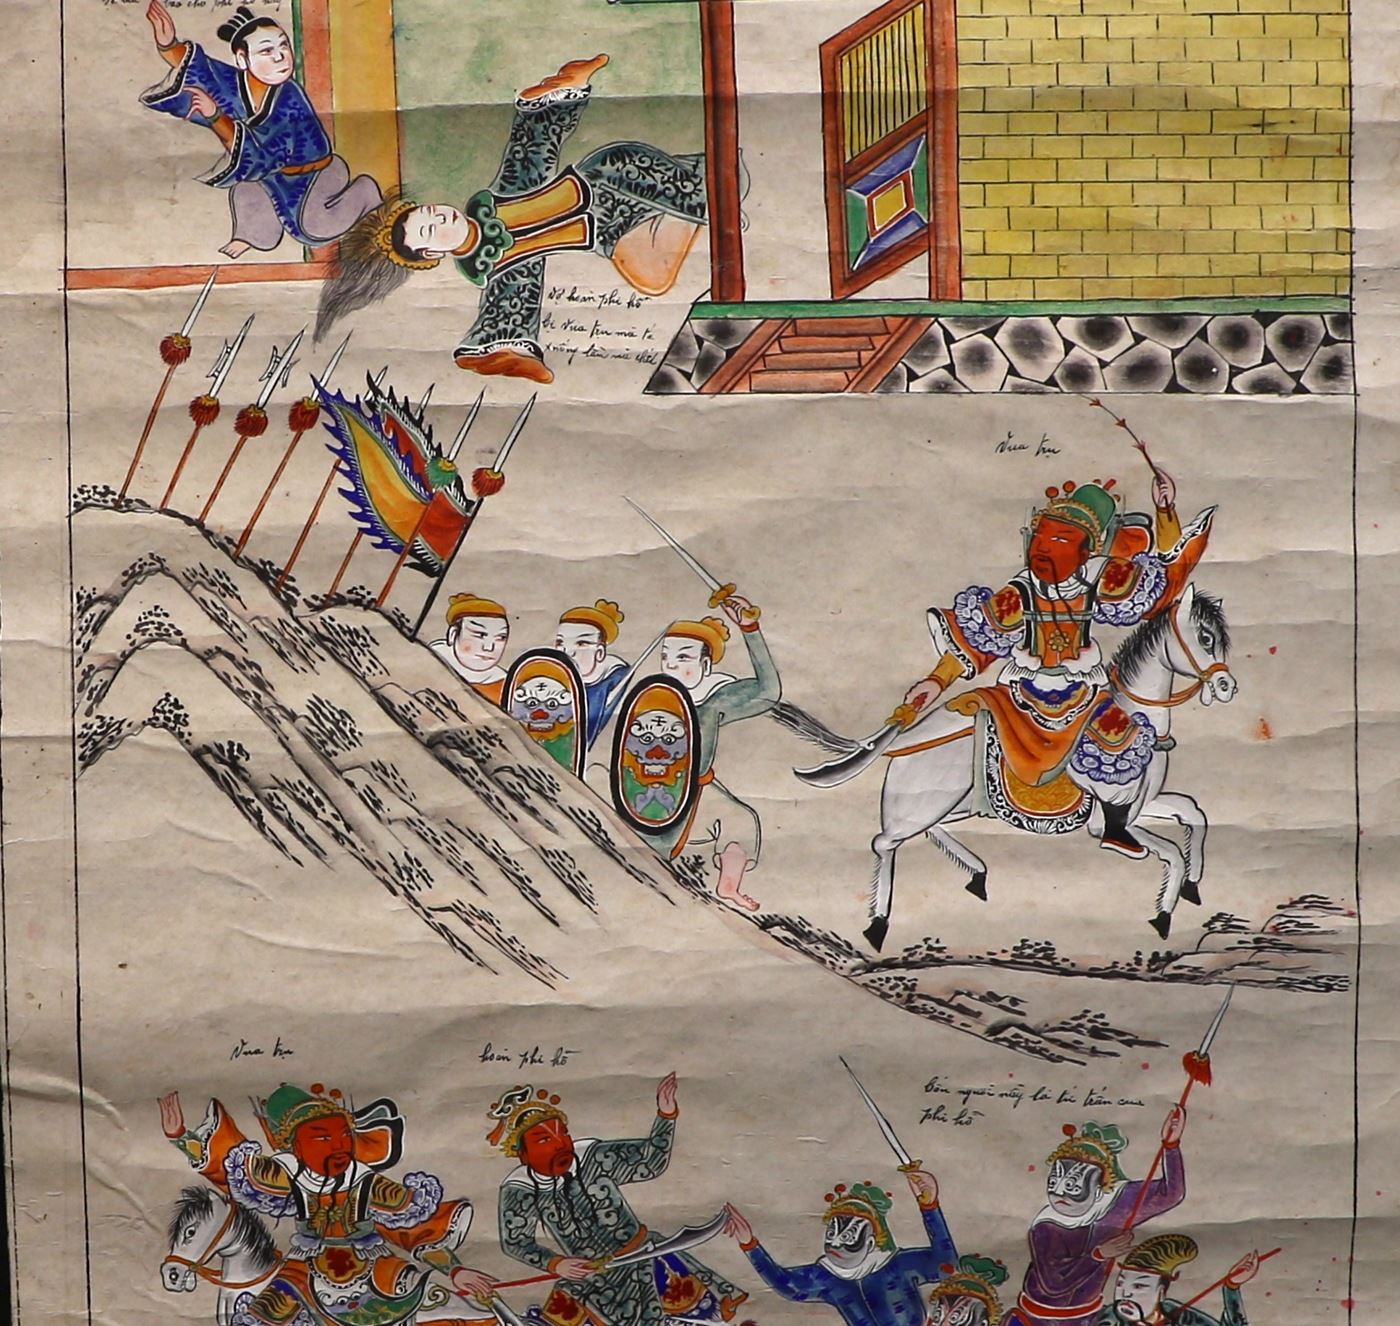 báo cho phi hổ hay
Vợ hoàn phi hổ
bị Vua trụ mà té
xuống lầu mà chết
Vua trụ
Vua trụ
hoàn phi hổ
bốn người nầy là tứ trấn của
phi hổ